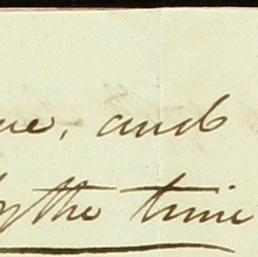 and
by the time